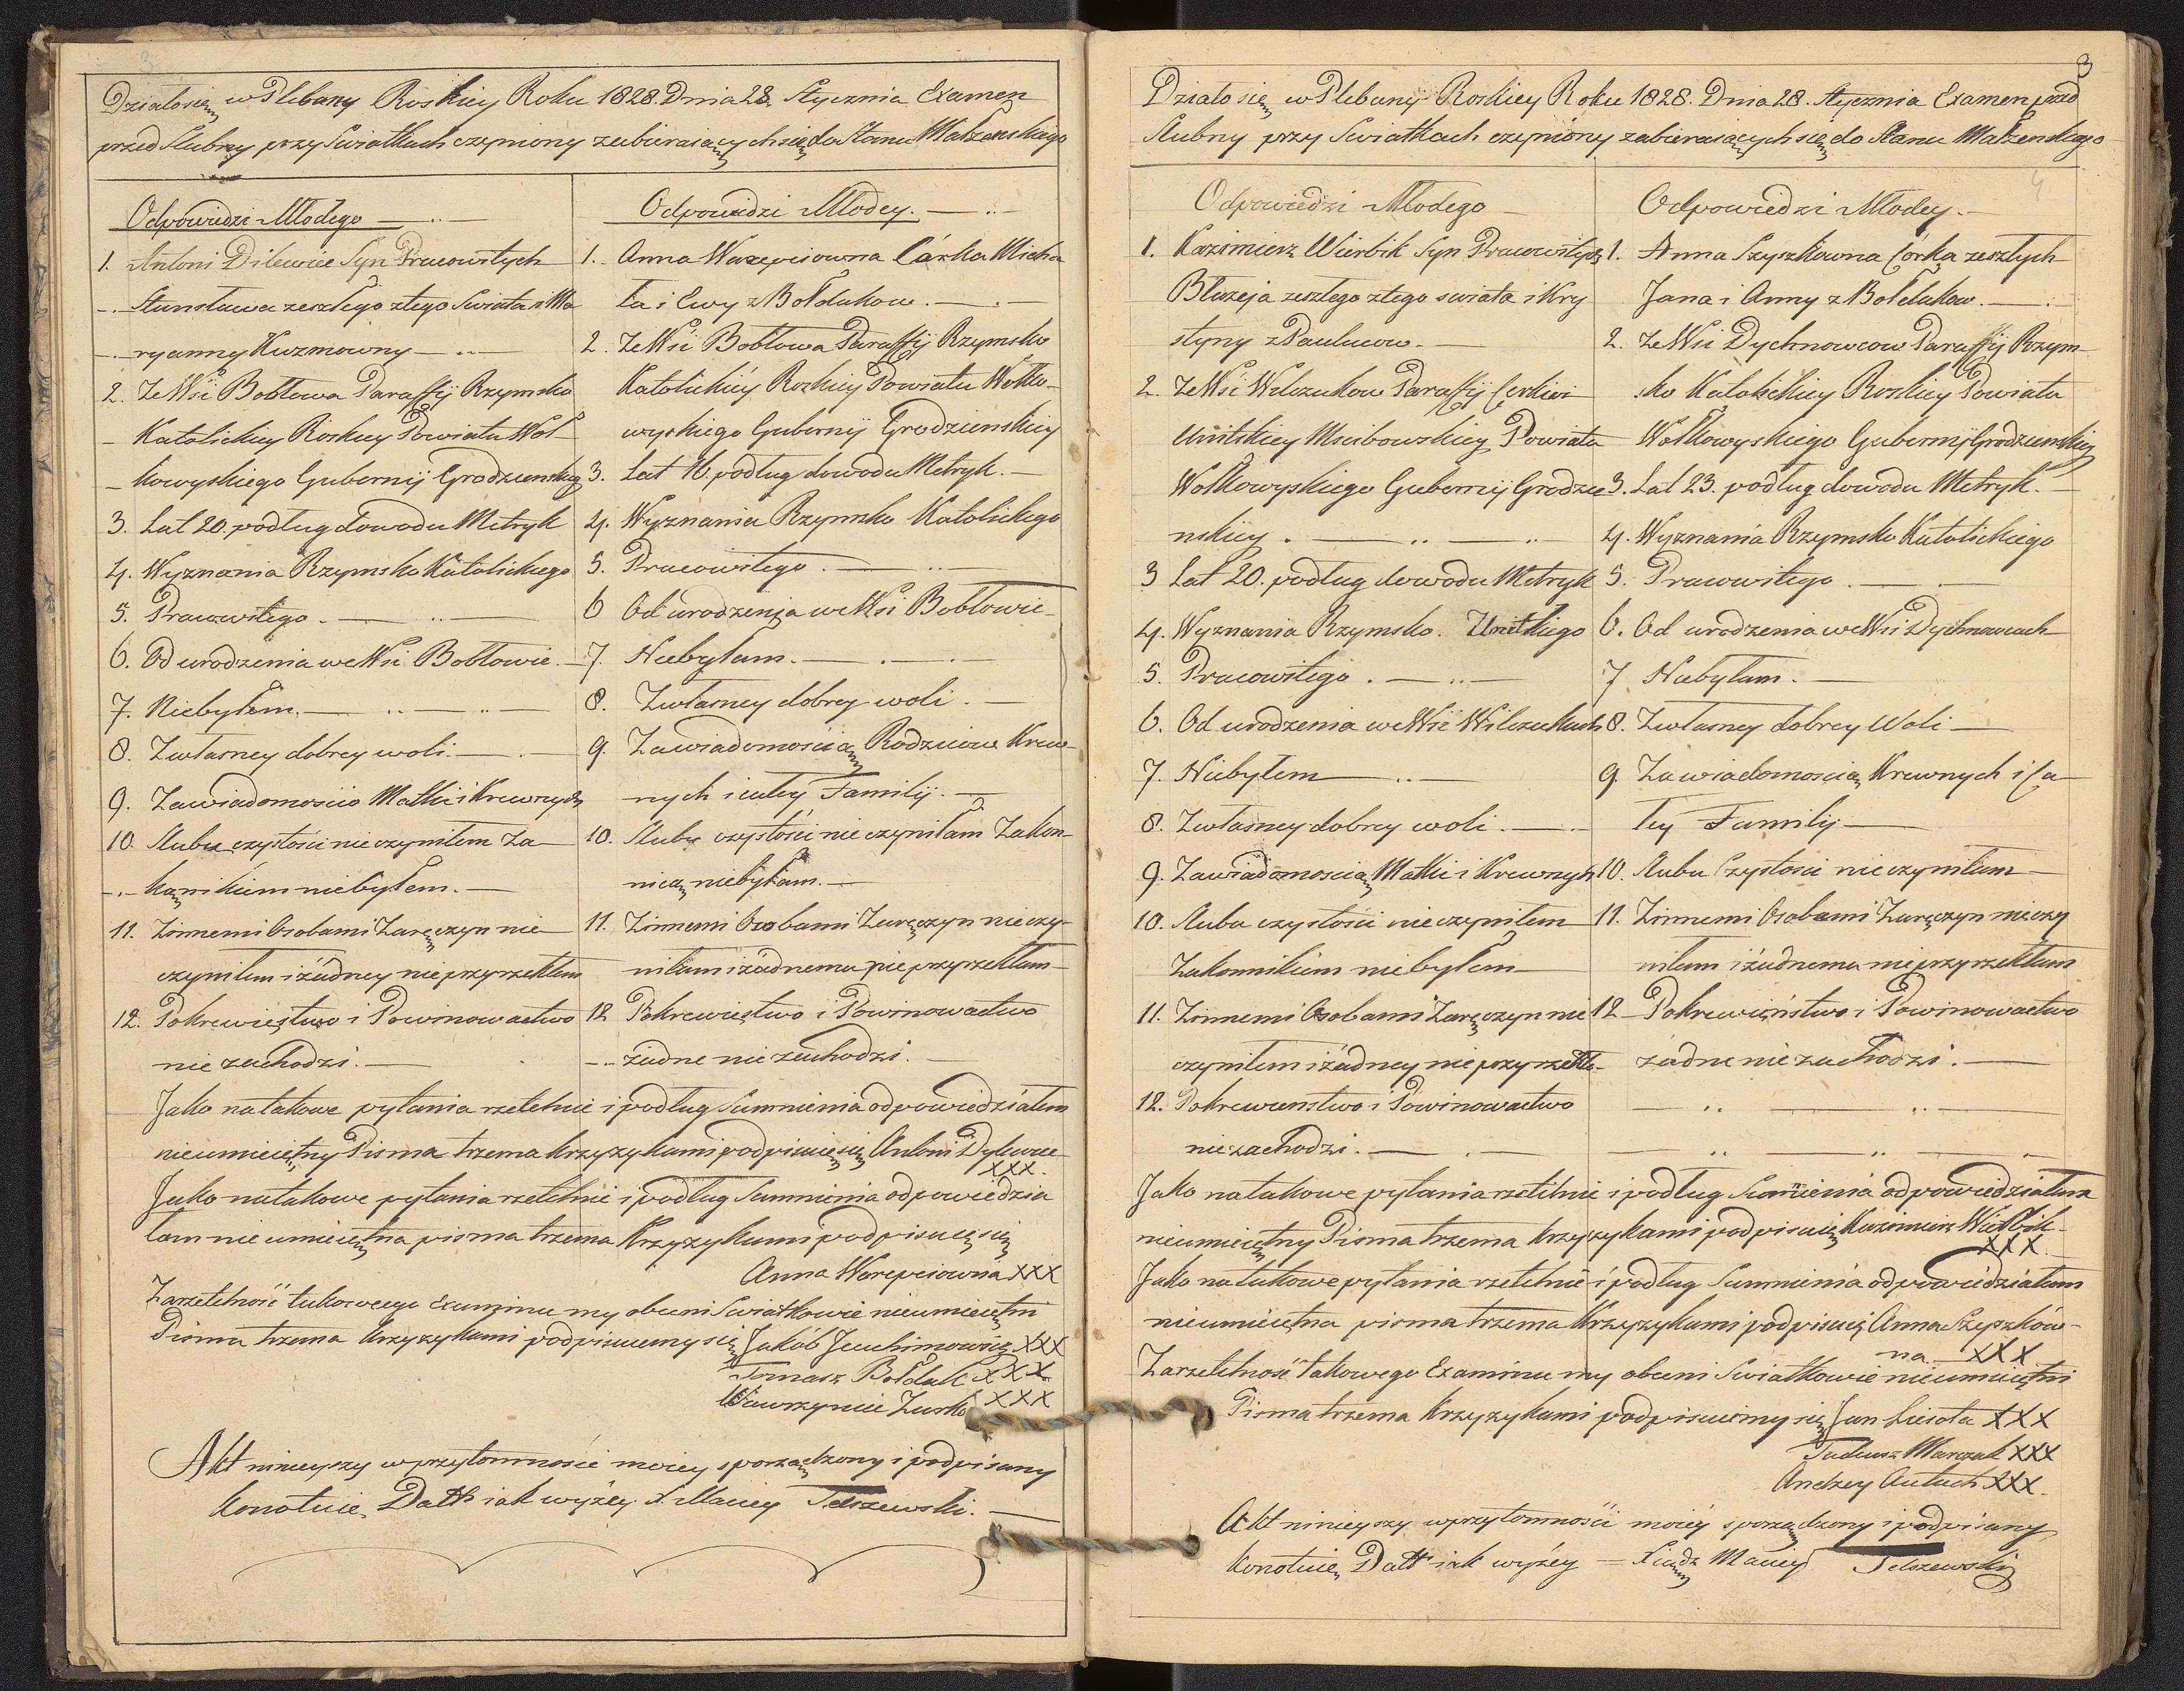 Działosię w Plebany Roskiey Roku 1828. Dnia 28. Stycznia Examen
przed Slubny przy Swiatkach czyniony zabieraiących się do Stanu Małzenskiego
Odpowiedzi Młodego
1. Antoni Dilewicz Syn Pracowitych
Stanisława zeszłego ztego Swiata i Ma
ryanny Kuzmowny
2. Ze Wsi Bobłowa Paraffij Rzymsko
Katolickiey Roskiey Powiatu Woł
kowyskiego Gubernij Grodzienskiey
3. Lat 20. podług dowodu Metryk
4. Wyznania Rzymsko Katolickiego
5. Pracowitego.
6. Od urodzenia we Wsi Bobłowie.
7. Niebyłem.
8. Zwłasney dobrey woli.
9. Zawiadomoscio Matki i Krewnych
10. Slubu czystości nie czyniłem Za
kąnnikiem niebyłem.
11. Zinnemi Osobami Zaręczyn nie
czyniłem i żadney nie przyrzekłem
12. Pokrewięstwo i Powinowactwo
nie zachodzi.
Odpowiedzi Młodey.
1. Anna Warepciowna Córka Micha
ła i Ewy z Bołdakow.
2. Ze Wsi Bobłowa Paraffij Rzymsko
Katolickiéy Roskiey Powiatu Wołko-
wyskiego Gubernij Grodzienskiey
3. Lat 16. podług dowodu Metryk.
4. Wyznania Rzymsko Katolickiego
5. Pracowitego.
6 Od urodzenia we Wsi Bobłowie
7. Niebyłam.
8. Zwłasney dobrey woli.
9. Zawiadomością Rodzicow Krew-
nych i całey Familij.
10. Slubu czystości nie czyniłam Zakon-
nicą niebyłam.
11. Zinnemi Osobami Zaręczyn nie czy-
niłam i żadnemu nie przyrzekłam
12 Pokrewięstwo i Powinowactwo
żadne nie zachodzi.
Jako na takowe pytania rzetelnie i podług Sumnienia odpowiedziałem
nieumieiętny Pisma trzema krzyzykami podpisuię się Antoni Dylewicz
XXX.
Jako na takowe pytania rzetelnie i podług Sumnienia odpowiedzia
łam nie umieiętna pisma trzema Krzyzykami podpisuię się
Anna Warepciowna XXX
Zarzetelność takowego Examinu my obecni Swiatkowie nieumieiętni
Pisma trzema krzyzykami podpisuiemy się Jakob Jeuchimowicz XXX
Tomasz Bołdak XXX.
Wawrzyniec Zusko XXX
Akt ninieyszy w przytomnoscie moiey sporządzony i podpisany
konotuię. Datt iak wyżey. X. Maciey Telszewski.
3
4
Działo się w Plebanij Roskiey Roku 1828. Dnia 28. Stycznia Examen przed
Slubny przy Swiatkach czynióny zabieraiących się do Stanu Małzenskiego
Odpowiedzi Młodego
1. Kazimierz Wierbik Syn Pracowitych
Błażeja zeszłego ztego swiata i Kry
styny z Paulucow.
2. Ze Wsi Wilczukow Paraffij Cerkwi
Unitskiey Mscibowskiey Powiatu
Wołkowyskiego Gubernij Grodzie
nskiey.
3 Lat 20. podług dowodu Metryk
4. Wyznania Rzymsko. Unitkiego
5. Pracowitego.
6. Od urodzenia we Wsi Wilczukach
7. Niebyłem
8. Zwłasney dobrey woli.
9. Zawiadomoscią Matki i Krewnych
10. Slubu czystości nie czyniłem
Zakonnikiem niebyłem
11. Zinnemi Osobami Zaręczyn nie
czyniłem i żadney nie przyrzekłe-
12. Pokrewenstwo i Powinowactwo
nie zachodzi.
Odpowiedzi Młodey.
1. Anna Szyszkowna Córka zeszłych
Jana i Anny z Bołdakow.
2. Ze Wsi Dychnowcow Paraffij Rzym-
sko Katolickiey Roskiey Powiatu
Wołkowyskiego Gubernij Grodzienskiey
3. Lat 23. podług dowodu Metryk.
4. Wyznania Rzymsko Katolickiego
5. Pracowitego.
6. Od urodzenia we Wsi Dychnowcach
7 Niebyłam.
8. Zwłasney dobrey Woli
9 Zawiadomoscią Krewnych i Ca
łey Familij
10. Slubu Czystości nie czyniłam
11. Zinnemi Osobami Zaręczyn nieczy
niłam i żadnemu nie przyrzekłam
12 Pokrewięństwo i Powinowactwo
żadne nie zachodzi.
Jako na takowe pytania rzetelnie i podług Sumienia odpowiedziałem
nieumieiętny Pisma trzema krzyzykami podpisuię Kazimierz Wierbik
XXX.
Jako na takowe pytania rzetelnie i podług Sumnienia odpowiedziałam
nieumieiętna pisma trzema Krzyzykami podpisuię Anna Szyszków-
na XXX
Zarzetelność takowego Examinu my obecni Swiatkowie nieumieiętni
Pisma trzema krzyzykami podpisuiemy się Jan Lisota XXX
Tadeusz Marczak XXX
Andrzey Autuch XXX.
Akt ninieyszy w przytomności moiéy sporządzony i podpisany
konotuię, Datt iak wyżey = Xiądz Maciey Telszewski